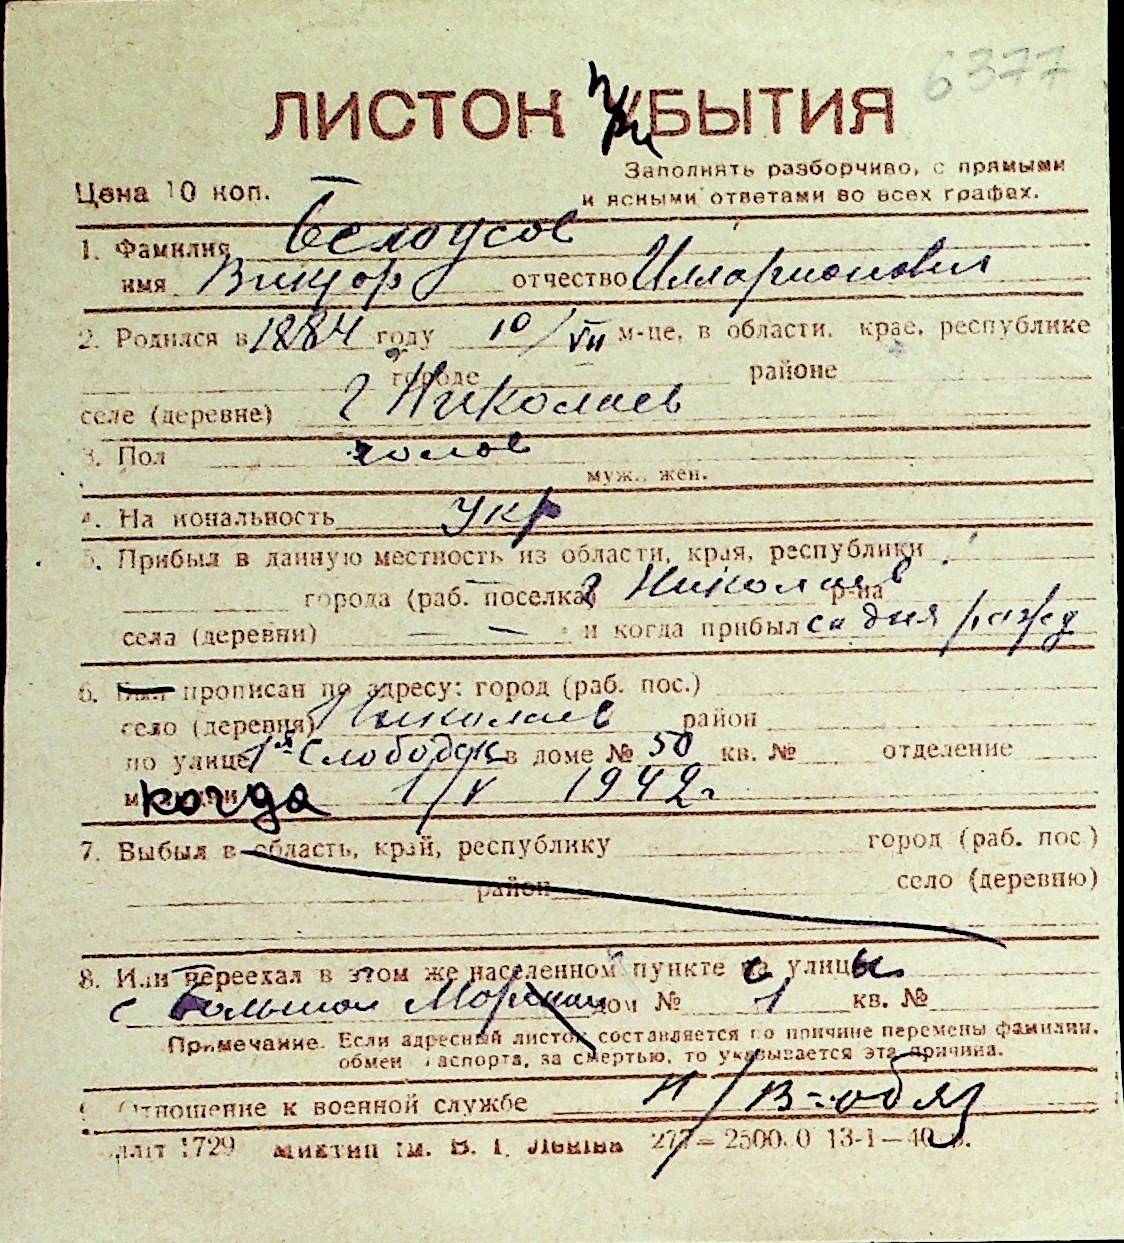 6377
ЛИСТОК ПриБЫТИЯ
Заполнять разборчиво, с прямыми
Цена 10 коп.
и ясными ответами во всех графах.
1. Фамилия Белоусов
имя Виктор отчество Илларионович
2. Родился в 1884 году 10/VII м-це, в области, крае, республике
городе районе
селе (деревне) г Николаев
3. Пол чолов
муж., жен.
4. На иональность укр
5. Прибыл в данную местность из области, края, республики
города (раб. поселка) г Николаев р-на
села (деревни) — — и когда прибыл са дня рожд
6. Был прописан по адресу: город (раб. пос.)
село (деревня) Николаев район
по улице 1я Слободск в доме № 50 кв. № отделение
когда 1/V 1942г
7. Выбыл в область, край, республику город (раб. пос.)
район село (деревню)
8. Или переехал в этом же населенном пункте с улицы
с Большой Морской дом № 1 кв. №
Примечание. Если адресный листок составляется по причине перемены фамилии,
обмен паспорта, за смертью, то указывается эта причина.
9. Отношение к военной службе Н/В-обяз
1729 им. В. І. Леніна 277—2500.0 13-1—40